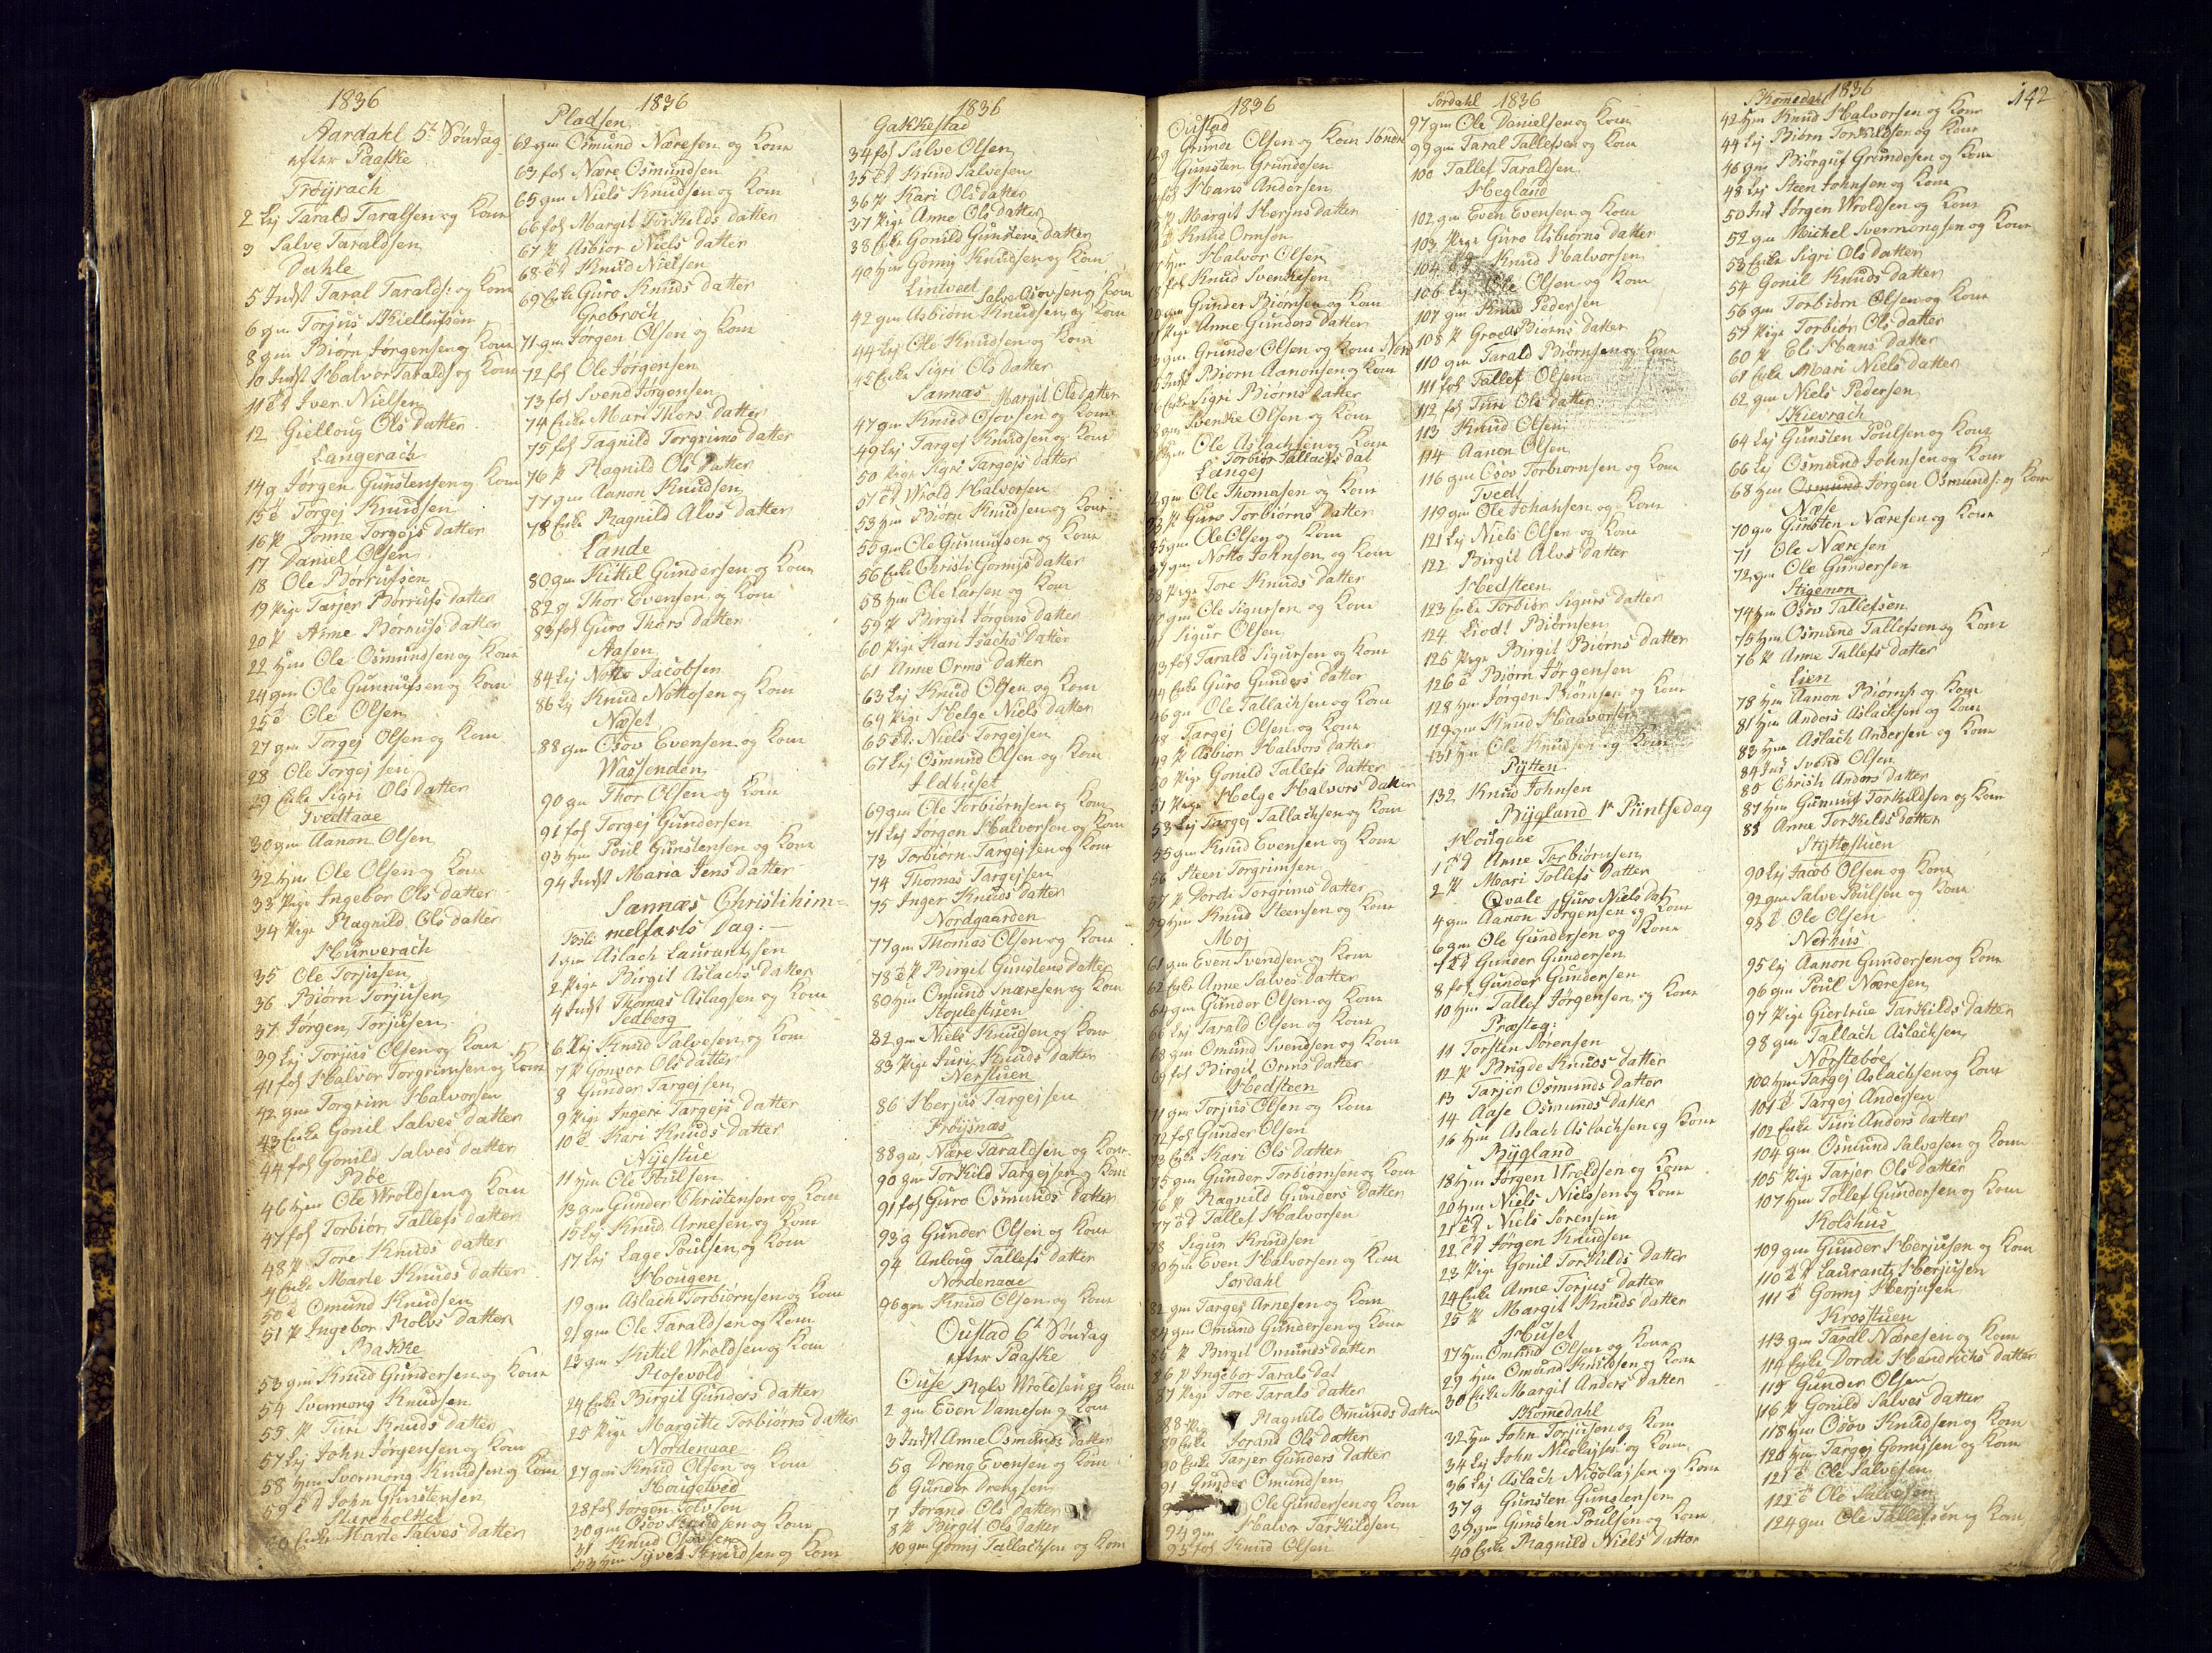 1836
Aardahl 5t Søndag
efter Paaske
Trøyrach
2 Lej Tarald Taralsen og Kone
3 Salve Taraldsen
Dahle
5 Indst Taral Taralds: og Kone
6 gm Torjus Kiellufsen
8 gm Biørn Jørgensen og Kone
10 Indst Halvor Taralds og Kone
11 Iver Nielsen
12 Gielloug Ols datter
Langerach
14 g Jørgen Gunstensen og Kone
15 Torgej Knudsen
16 P Tonne Torgejs datter
17 Daniel Olsen
18 Ole Børrufsen
19 Pige Tarjer Børrufs datter
20 P Anne Børrufs datter
22 Hm Ole Osmundsen og Kone
24 gm Ole Gunnufsen og Kone
25 Ole Olsen
27 gm Torgej Olsen og Kone
28 Ole Torgejsen
29 Enke Sigri Ols datter
Tvedtaae
30 gm Aanon Olsen
32 Hm Ole Olsen og Kone
33 Pige Ingebor Ols datter
34 Pige Ragnild Ols datter
Hurverach
35 Ole Torjusen
36 Biørn Torjusen
37 Jørgen Torjusen
39 Lej Torjus Olsen og Kone
41 fos Halvor Torgrimsen og Kone
42 gm Torgrim Halvorsen
43 Enke Gonil Salves datter
44 fos Gonild Salves datter
Bøe
46 Hm Ole Wroldsen og Kone
47 fos Torbiør Tallefs datter
48 P Tore Knuds datter
Enke Marte Knuds datter
50 Omund Knudsen
51 P Ingebor Rolvs datter
Bakke
53 gm Knud Gundersen og Kone
54 Svennong Knudsen
55 P Turi Knuds datter
57 Lej John Jørgensen og Kone
58 Hm Svennong Knudsen og Kone
59 John Gunstensen
Stareholttet
60 Enke Marte Salves datter
1836
Pladsen
62 gm Osmund Næresen og Kone
63 fos Nære Osmundsen
65 gm Niels Knudsen og Kone
66 fos Margit Torkelds datter
67 P Asbior Niels datter
68 Knud Nielsen
69 Enke Guro Knuds datter
Grobroch
71 gm Jørgen Olsen og Kone
72 fos Ole Jørgensen
73 fos Svend Jørgensen
74 Enke Mari Thors datter
75 fos Tagnild Torgrims datter
76 P Ragnild Ols datter
77 gm Aanon Knudsen
78 Enke Ragnild Alvs datter
Lande
80 gm Kittil Gundersen og Kone
82 g Thor Evensen og Kone
83 fos Guro Thors datter
Aasen
84 Lej Notto Jacobsen
86 Lej Knud Nottosen og Kone
Næset
88 gm Osov Evensen og Kone
Wassenden
90 gm Thor Olsen og Kone
91 fos Torgej Gundersen
93 Hm Poul Gunstensen og Kone
94 Indst Maria Jens datter
Sannæs Christi him=
melfarts Dag: —
1 gm Aslach Laurantsen
2 Pige Birgit Aslachs datter
4 Indst Thomas Aslagsen og Kone
Sedberg
6 Lej Knud Salvesen og Kone
7 P Gonvor Ols datter
8 Gunder Targejsen
9 Pige Ingeri Targejs datter
10 Kari Knuds datter
Nyestue
11 Hm Ole Poulsen
13 gm Gunder Christensen og Kone
15 Lej Knud Arnesen og Kone
17 Lej Lage Poulsen og Kone
Hougen
19 gm Aslach Torbiørnsen og Kone
21 gm Ole Taraldsen og Kone
23 gm Kittil Wroldsen og Kone
Rosevold
24 Enke Birgit Gunders datter
25 Pige Margitte Torbiørns datter
Nordenaae
27 gm Knud Olsen og Kone
Hougetved
28 fos Jørgen Tolvsen
30 gm Osov Knudsen og Kone
31 Knud Osovsen
33 Hm Tyvel Knudsen og Kone
1836
Gakkestad
34 fos Salve Olsen
35 Knud Salvesen
36 P Kari Ols datter
37 Pige Anne Ols datter
38 Enke Gonild Gunstens datter
40 Hm Gonny Knudsen og Kone
Lintvedt Salve Osovsen og Kone
42 gm Asbiørn Knudsen og Kone
44 Lej Ole Knudsen og Kone
45 Enke Sigri Ols datter
Sannæs Margit Ols datter
47 gm Knud Osovsen og Kone
49 Lej Targej Knudsen og Kone
50 Pige Sigri Targejs datter
51 Wrold Halvorsen
53 Hm Biørn Knudsen og Kone
55 gm Ole Gunnufsen og Kone
56 Enke Christi Gonnys datter
58 Hm Ole Larsen og Kone
59 P Birgit Jørgens datter
60 Pige Kari Isachs datter
61 Anne Orms datter
63 Lej Knud Olsen og Kone
64 Pige Helge Niels datter
65 Niels Torgejsen
67 Lej Osmund Olsen og Kone
Ildhuset
69 gm Ole Torbiørnsen og Kone
71 Lej Jørgen Halvorsen og Kone
73 Torbiørn Targejsen og Kone
74 Thomas Targejsen
75 Inger Knuds datter
Nordgaarden
77 gm Thomas Olsen og Kone
78 P Birgit Gunstens datter
80 Hm Omund Næresen og Kone
Stoplestuen
82 gm Niels Knudsen og Kone
83 Pige Turi Knuds datter
Nerstuen
86 Herjus Targejsen
Frøysnæs
88 gm Nære Taraldsen og Kone
90 gm Torkild Targejsen og Kone
91 fos Guro Osmunds datter
93 g Gunder Olsen og Kone
94 Anloug Tallefs datter
Nordenaae
96 gm Knud Olsen og Kone
Oustad 6t Søndag
efter Paaske
Ouse Rolv Wroldsen og Kone
2 gm Even Danielsen og Kone
3 Indst Anne Osmunds datter
5 g Dreng Evensen og Kone
6 Gunder Drengsen
7 Jorand Ols datter
8 P Birgit Ols datter
10 gm Gonny Tallachsen og Kone
1836
Oustad
12 g Grunde Olsen og Kone
Gunsten Grundesen
fos Hans Andersen
P Margit Herjus datter
Knud Ormsen
17 Hm Halvor Olsen
18 fos Knud Svenkesen
20 gm Gunder Biørnsen og Kone
Pige Anne Gunders datter
gm Grunde Olsen og Kone Nord
Indst Biørn Aanonsen og Kone
Enke Sigri Biørns datter
gm Svenke Olsen og Kone
Hm Ole Aslachsen og Kone
Torbiør Tallachs dat
Langej
gm Ole Thomasen og Kone
P Guro Torbiørns datter
35 gm Ole Olsen og Kone
37 gm Notto Johnsen og Kone
38 Pige Tore Knuds datter
40 gm Ole Sigursen og Kone
41 Sigur Olsen
43 fos Tarald Sigursen og Kone
44 Enke Guro Gunders datter
46 gm Ole Tallachsen og Kone
48 Targej Olsen og Kone
49 P Asbior Halvors datter
50 Pige Gonild Tallefs datter
51 Pige Helge Halvors datter
53 Lej Targej Tallachsen og Kone
55 gm Knud Evensen og Kone
56 Steen Torgrimsen
57 P Dordi Torgrims datter
59 Hm Knud Steensen og Kone
Moj
61 gm Even Svendsen og Kone
62 Enke Anne Salves datter
64 gm Gunder Olsen og Kone
66 Lej Tarald Olsen og Kone
68 gm Omund Svendsen og Kone
69 fos Birgit Orms datter
Hedsteen
71 gm Torjus Olsen og Kone
72 fos Gunder Olsen
73 Enke Kari Ols datter
75 gm Gunder Torbiørnsen og Kone
76 P Ragnild Gunders datter
77 Tallef Halvorsen
78 Sigur Knudsen
80 Hm Even Halvorsen og Kone
Sordahl
82 gm Targej Arnesen og Kone
84 gm Omund Gundersen og Kone
85 P Birgit Omunds datter
86 P Ingebor Tarals Dat
87 Pige Tore Tarals datter
88 Pige Ragnild Omunds datter
89 Enke Jorand Ols datter
90 Enke Tarjer Gunders datter
91 Gunder Omundsen
Ole Gundersen og Kone
94 gm Halvor Tarkildsen
95 fos Knud Olsen
Sordahl 1836
97 gm Ole Danielsen og Kone
99 gm Taral Tallefsen og Kone
100 Tallef Taraldsen
Hegland
102 gm Even Evensen og Kone
103 Pige Guro Asbiørns datter
104 Knud Halvorsen
106 Lej Ole Olsen og Kone
107 gm Knud Pedersen
108 P Groe Asbiørns datter
110 gm Tarald Biørnsen og Kone
111 fos Tallef Olsen
112 fos Turi Ols datter
113 Knud Olsen
114 Aanon Olsen
116 gm Osov Torbiørnsen og Kone
Tvedt
119 gm Ole Johansen og Kone
121 Lej Niels Olsen og Kone
122 Birgit Alvs datter
Hedsteen
123 Enke Torbiør Sigurs datter
124 Liodt Biørnsen
125 Pige Birgit Biørns datter
126 Biørn Jørgensen
128 Hm Jørgen Biørnsen og Kone
129 gm Knud Haavorsen
131 Hm Ole Knudsen og Kone
Pytten
132 Knud Johnsen
Bygland 1t Pintsedag
Hougaae
1 Anne Torbiørnsen
2 P Mari Tollefs datter
Qvale Guro Niels Dat
4 gm Aanon Jørgensen og Kone
6 gm Ole Gundersen og Kone
7 Gunder Gundersen
8 fos Gunder Gundersen
10 Hm Tallef Jørgensen og Kone
Præsteg:
11 Torsten Sørensen
12 P Brigde Knuds datter
13 Tarjer Osmunds datter
14 Aase Osmunds datter
16 Hm Aslach Aslachsen og Kone
Bygland
18 Hm Jørgen Wroldsen og Kone
20 Hm Niels Nielssen og Kone
21 Niels Sørensen
22 Jørgen Knudsen
23 Pige Gonil Torkilds datter
24 Enke Anne Torjus datter
25 P Margit Knuds datter
Huset
27 Hm Omund Olsen og Kone
29 Hm Omund Knudsen og Kone
30 Enke Margit Anders datter
Skomedahl
32 Hm John Torjusen og Kone
34 Lej John Nicolajsen og Kone
36 Lej Aslach Nicolajsen og Kone
37 g Gunsten Gunstensen
39 gm Gunsten Poulsen og Kone
40 Enke Ragnild Niels datter
Skomedahl 1836
142
42 Hm Knud Halvorsen og Kone
44 Lej Biørn Torkildsen og Kone
46 gm Biørguf Grundesen og Kone
48 Lej Steen Johnsen og Kone
50 Ind Jørgen Wroldsen og Kone
52 gm Michel Svennongsen og Kone
53 Enke Sigri Ols datter
54 Gonil Knuds datter
56 gm Torbiørn Olsen og Kone
57 Pige Torbiør Ols datter
60 P Eli Hans datter
61 Enke Mari Niels datter
62 gm Niels Pedersen
Kievrach
64 Lej Gunsten Poulsen og Kone
66 Lej Osmund Johnsen og Kone
68 Hm Osmund Jørgen Osmunds: og Kone
Næse
70 gm Gunsten Næresen og Kone
71 Ole Næresen
72 gm Ole Gundersen
Stigemon
74 Hm Osov Tallefsen
75 Hm Osmund Tallefsen og Kone
76 P Anne Tallefs datter
Lien
78 Hm Aanon Biørns: og Kone
81 Hm Anders Aslachsen og Kone
83 Hm Aslach Andersen og Kone
84 Ind Svend Olsen
85 Christi Anders datter
87 Hm Gunnuf Torkildsen og Kone
88 Anne Torkelds datter
Styttestuen
90 Lej Jacob Olsen og Kone
92 gm Salve Poulsen og Kone
93 Ole Olsen
Nerhus
95 Lej Aanon Gundersen og Kone
96 gm Poul Næresen
97 Pige Giertrue Tarkilds datter
98 gm Tallach Aslachsen
Nørsteboe
100 Hm Targej Aslachsen og Kone
101 Targej Andersen
102 Enke Turi Anders datter
104 gm Osmund Salvesen og Kone
105 Pige Tarjer Ols datter
107 Hm Tollef Gundersen og Kone
Kolshus
109 gm Gunder Herjusen og Kone
110 Laurants Herjusen
111 Gonny Herjusen
Krosstuen
113 gm Taral Næresen og Kone
114 Enke Dordi Hendrichs datter
115 Gunder Olsen
116 P Gonild Salves datter
118 Hm Osov Knudsen og Kone
120 Hm Targej Gonnysen og Kone
121 Ole Salvesen
122 Ole Salvesen
124 gm Ole Tallefsen og Kone